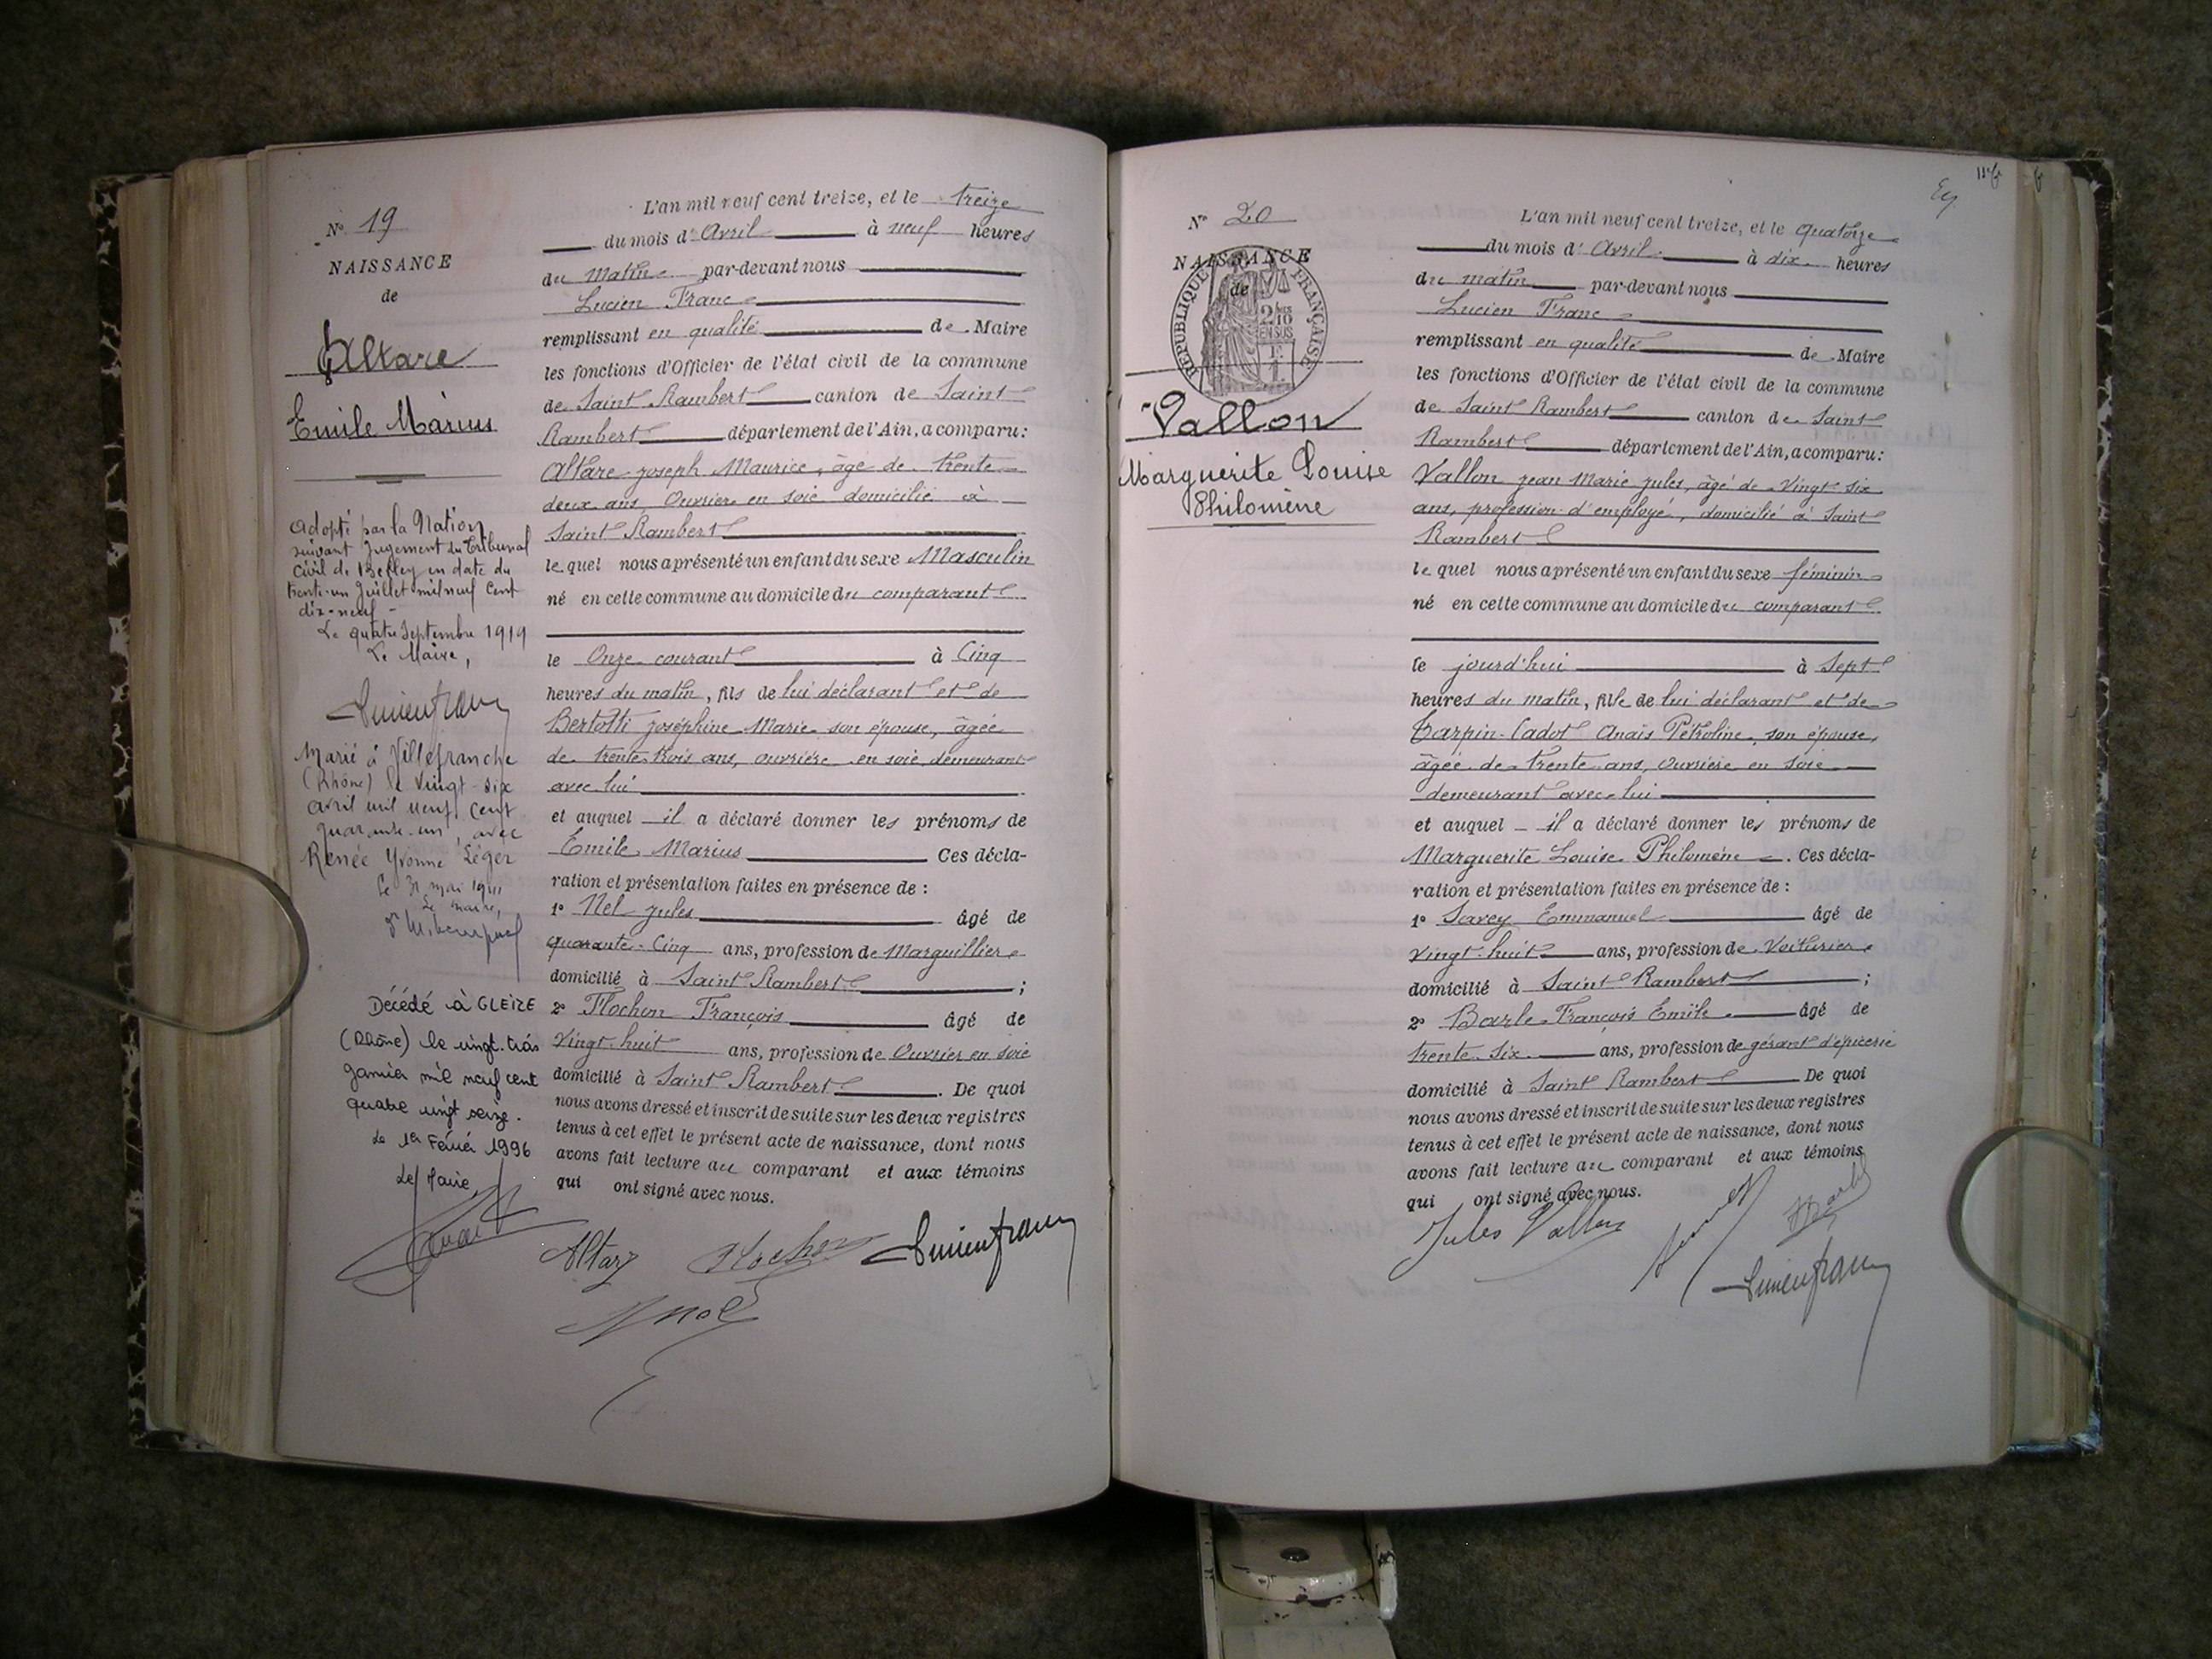 N° 19
NAISSANCE
de
Altare
Emile Marius
Adopté par la Nation
suivant jugement du Tribunal
Civil de Belley en date du
trente-un Juillet mil neuf cent
dix-neuf
Le quatre Septembre 1919
Le Maire,
Lucien Franc
Marié à Villefranche
(Rhône) le vingt-six
avril mil neuf cent
quarante-un, avec
Renée Yvonne Léger
le 31 mai 1941
Le maire,
Décédé à GLEIZE
(Rhône) le vingt-trois
janvier mil neuf cent
quatre vingt seize.
Le 1er Février 1996
Le Maire,
L'an mil neuf cent treize, et le treize
du mois d'Avril à neuf heures
du Matin par-devant nous
Lucien Franc
remplissant en qualité de Maire
les fonctions d'Officier de l'état civil de la commune
de Saint Rambert canton de Saint
Rambert département de l'Ain, a comparu:
Altare Joseph Maurice, âgé de trente
deux ans, Ouvrier en soie domicilié à
Saint Rambert
le quel nous a présenté un enfant du sexe Masculin
né en cette commune au domicile du comparant
le Onze courant à Cinq
heures du matin, fils de lui déclarant et de
Bertotti Joséphine Marie son épouse, âgée
de trente trois ans, ouvrière en soie, demeurant
avec lui
et auquel il a déclaré donner les prénoms de
Emile Marius Ces décla-
ration et présentation faites en présence de :
1° Nel Jules âgé de
quarante-Cinq ans, profession de Marguillier
domicilié à Saint Rambert ;
2° Flochon François âgé de
Vingt-huit ans, profession de Ouvrier en soie
domicilié à Saint Rambert. De quoi
nous avons dressé et inscrit de suite sur les deux registres
tenus à cet effet le présent acte de naissance, dont nous
avons fait lecture au comparant et aux témoins
qui ont signé avec nous.
Altare Flochon Lucien Franc
N° 20
NAISSANCE
de
RÉPUBLIQUE FRANÇAISE
2/10
EN SUS
Vallon
Marguerite Louise
Philomène
L'an mil neuf cent treize, et le quatorze
du mois d'Avril à dix heures
du matin par-devant nous
Lucien Franc
remplissant en qualité de Maire
les fonctions d'Officier de l'état civil de la commune
de Saint Rambert canton de Saint
Rambert département de l'Ain, a comparu:
Vallon Jean Marie Jules, âgé de Vingt six
ans, profession d'employé, domicilié à Saint
Rambert
le quel nous a présenté un enfant du sexe féminin
né en cette commune au domicile du comparant
le jourd'hui à Sept
heures du matin, fille de lui déclarant et de
Carpin-Cadot Anaïs Pétroline, son épouse,
âgée de trente ans, Ouvrière en Soie
demeurant avec lui
et auquel il a déclaré donner les prénoms de
Marguerite Louise Philomène. Ces décla-
ration et présentation faites en présence de :
1° Savey Emmanuel âgé de
vingt-huit ans, profession de Voiturier
domicilié à Saint Rambert ;
2° Barle François Emile âgé de
trente-six ans, profession de gérant d'épicerie
domicilié à Saint Rambert De quoi
nous avons dressé et inscrit de suite sur les deux registres
tenus à cet effet le présent acte de naissance, dont nous
avons fait lecture au comparant et aux témoins
qui ont signé avec nous.
Jules Vallon
Lucien Franc